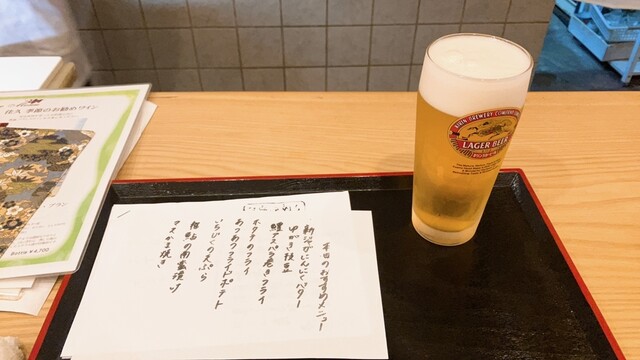 本日のおすすめメニュー
新ジャがにんにくバター
鱧アスパラ巻きフライ
ホタテのフライ
あつあつフライドポテト
いちじくの天ぷら
稚鮎の南蛮漬け
季節のお勧めワイン
Bottle ¥4,700
KIRIN BREWERY COMPANY
LAGER BEER